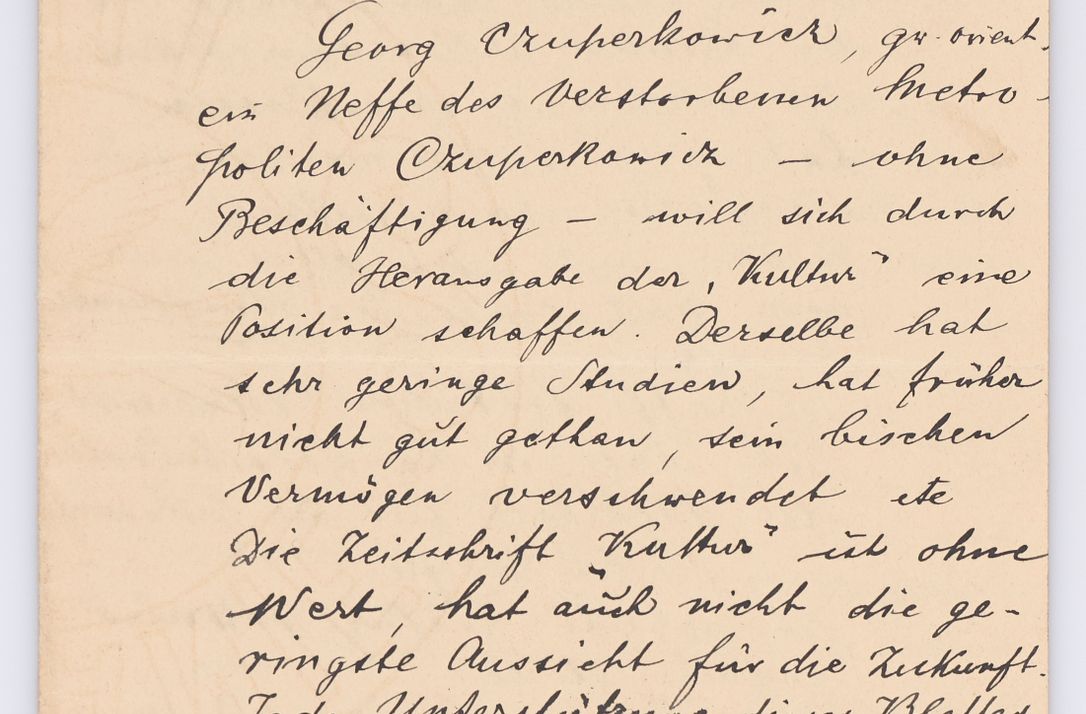 Georg Czuperkowicz, gr. orient.
ein Neffe des verstorbenen Metro-
politen Czuperkowicz — ohne
Beschäftigung — will sich durch
die Herausgabe der „Kultur" eine
Position schaffen. Derselbe hat
sehr geringe Studien, hat früher
nicht gut gethan, sein bischen
Vermögen verschwendet etc
Die Zeitschrift „Kultur" ist ohne
Wert, hat auch nicht die ge-
ringste Aussicht für die Zukunft.
Jede Unterstützung dieses Blattes